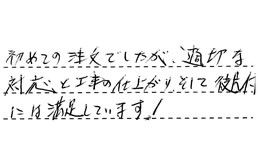 初めての注文でしたが、適切な
対応と工事の仕上がりそして後片付
には満足しています！